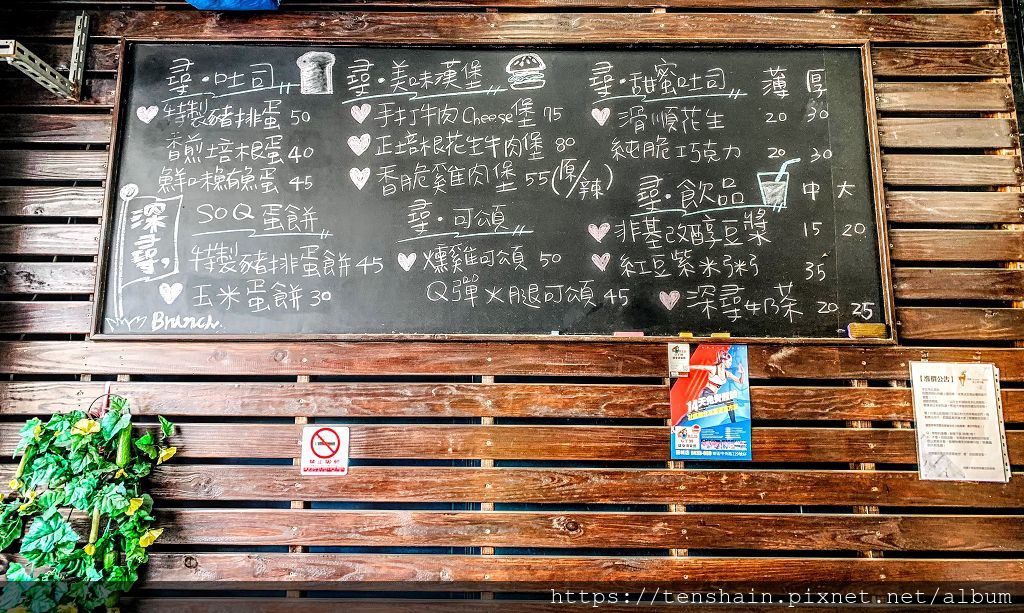 尋·吐司
特製豬排蛋 50
香煎培根蛋 40
鮮味鮪魚蛋 45
SOQ蛋餅
特製豬排蛋餅 45
玉米蛋餅 30
深尋,
Brunch
尋·美味漢堡
手打牛肉Cheese堡 75
正培根花生牛肉堡 80
香脆雞肉堡 55(原/辣)
尋·可頌
燻雞可頌 50
Q彈火腿可頌 45
尋·甜蜜吐司 薄 厚
滑順花生 20 30
純脆巧克力 20 30
尋·飲品 中 大
非基改醇豆漿 15 20
紅豆紫米粥 35
深尋奶茶 20 25
14天免費體驗
【漲價公告】
https://tenshain.pixnet.net/album